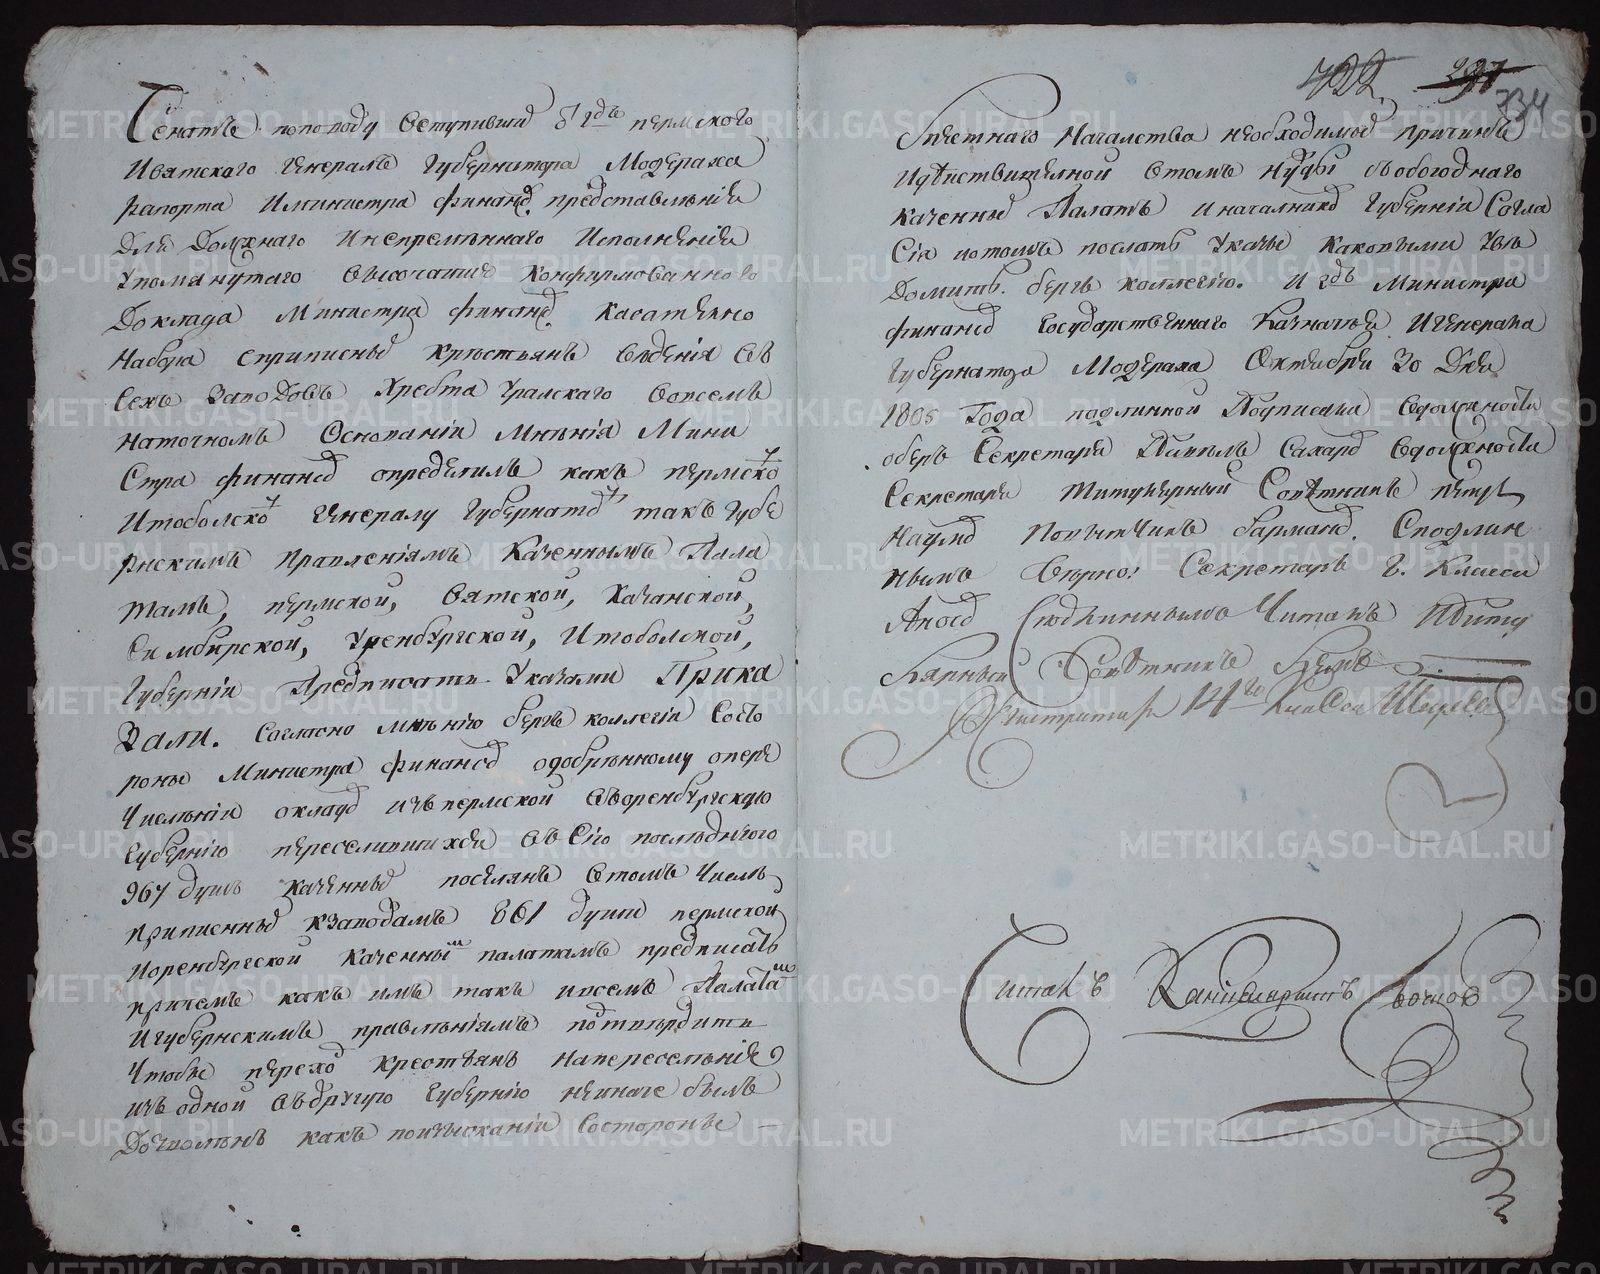 Сенатъ поповоду Вступившаго Г гдъ пермского
Ивятского Генералъ Губернатора Модераха
рапорта Иминистра финанс. представлѣнія
Для Должнаго Инепремѣннаго Исполнѣнія
Упомянутаго Высочаише Конфирмованного
Доклада Министра финанс. Касатѣлно
Набора Сприписныхъ Крѣстьянъ Вѣденія
Сехъ Заводовъ Хребта Уралскаго Вовсемъ
Наточномъ Основаніи Мнѣнія Мини
Стра финансо опредѣлилъ какъ пермско
Итоболско Генералу Губернато такъ Губе
рнскимъ Правленіямъ Казеннымъ Пала
тамъ, пермской, Вятской, Казанской,
Симбирской, Уренбургской, Итоболской,
Губерніи Предписать Указами Прика
Зали. Согласно мнѣнію бергъ коллегіи Сосъ
роны Министра финансо одобрѣнному опере
Числѣніи окладо изъ пермской Въоренбургскую
Губернію переселившихся Въ Сію послѣднюю
967 душъ казенныхъ поселянъ Втомъ Числѣ
приписныхъ кзаводамъ 861 души пермской
Иоренбургской Казенныім палатамъ предписать
причемъ какъ имъ такъ ивсемъ Палатам
Игубернскимъ правлѣніямъ подтвердить
Чтобы переходъ крестьянъ Напереселѣніе
изъ одной Въдругую Губернію неиначе былъ
Дозволѣнъ какъ повзысканіи Состороны
422. 297
734
Спѣстнаго Началства необходимыхъ причинъ
Идѣиствителной Втомъ нужды Съобогоднаго
казенныхъ Палатъ иначалниковъ Губерніи Согла
Сія потомъ послать Указы каковыми Увѣ
Домить бергъ коллегію. И Гдъ Министра
финансо Государствѣннаго Казначѣя ИГенерала
Губернатора Модераха Октября 30 Дня
1805 Года подлинной Подписали Вдолжности
оберъ Секретаря Павелъ Сахаро Вдолжности
Секретаря Титулярный Совѣтникъ петръ
Наумо Повытчикъ барманс. Сподлин
нымъ Вѣрно: Секретарь 8. Класса
Аносо Сподлиннымъ Читалъ Ибиту
Кярный Совѣтникъ
Регистраторъ 14го класса
Читалъ Канцеляристъ